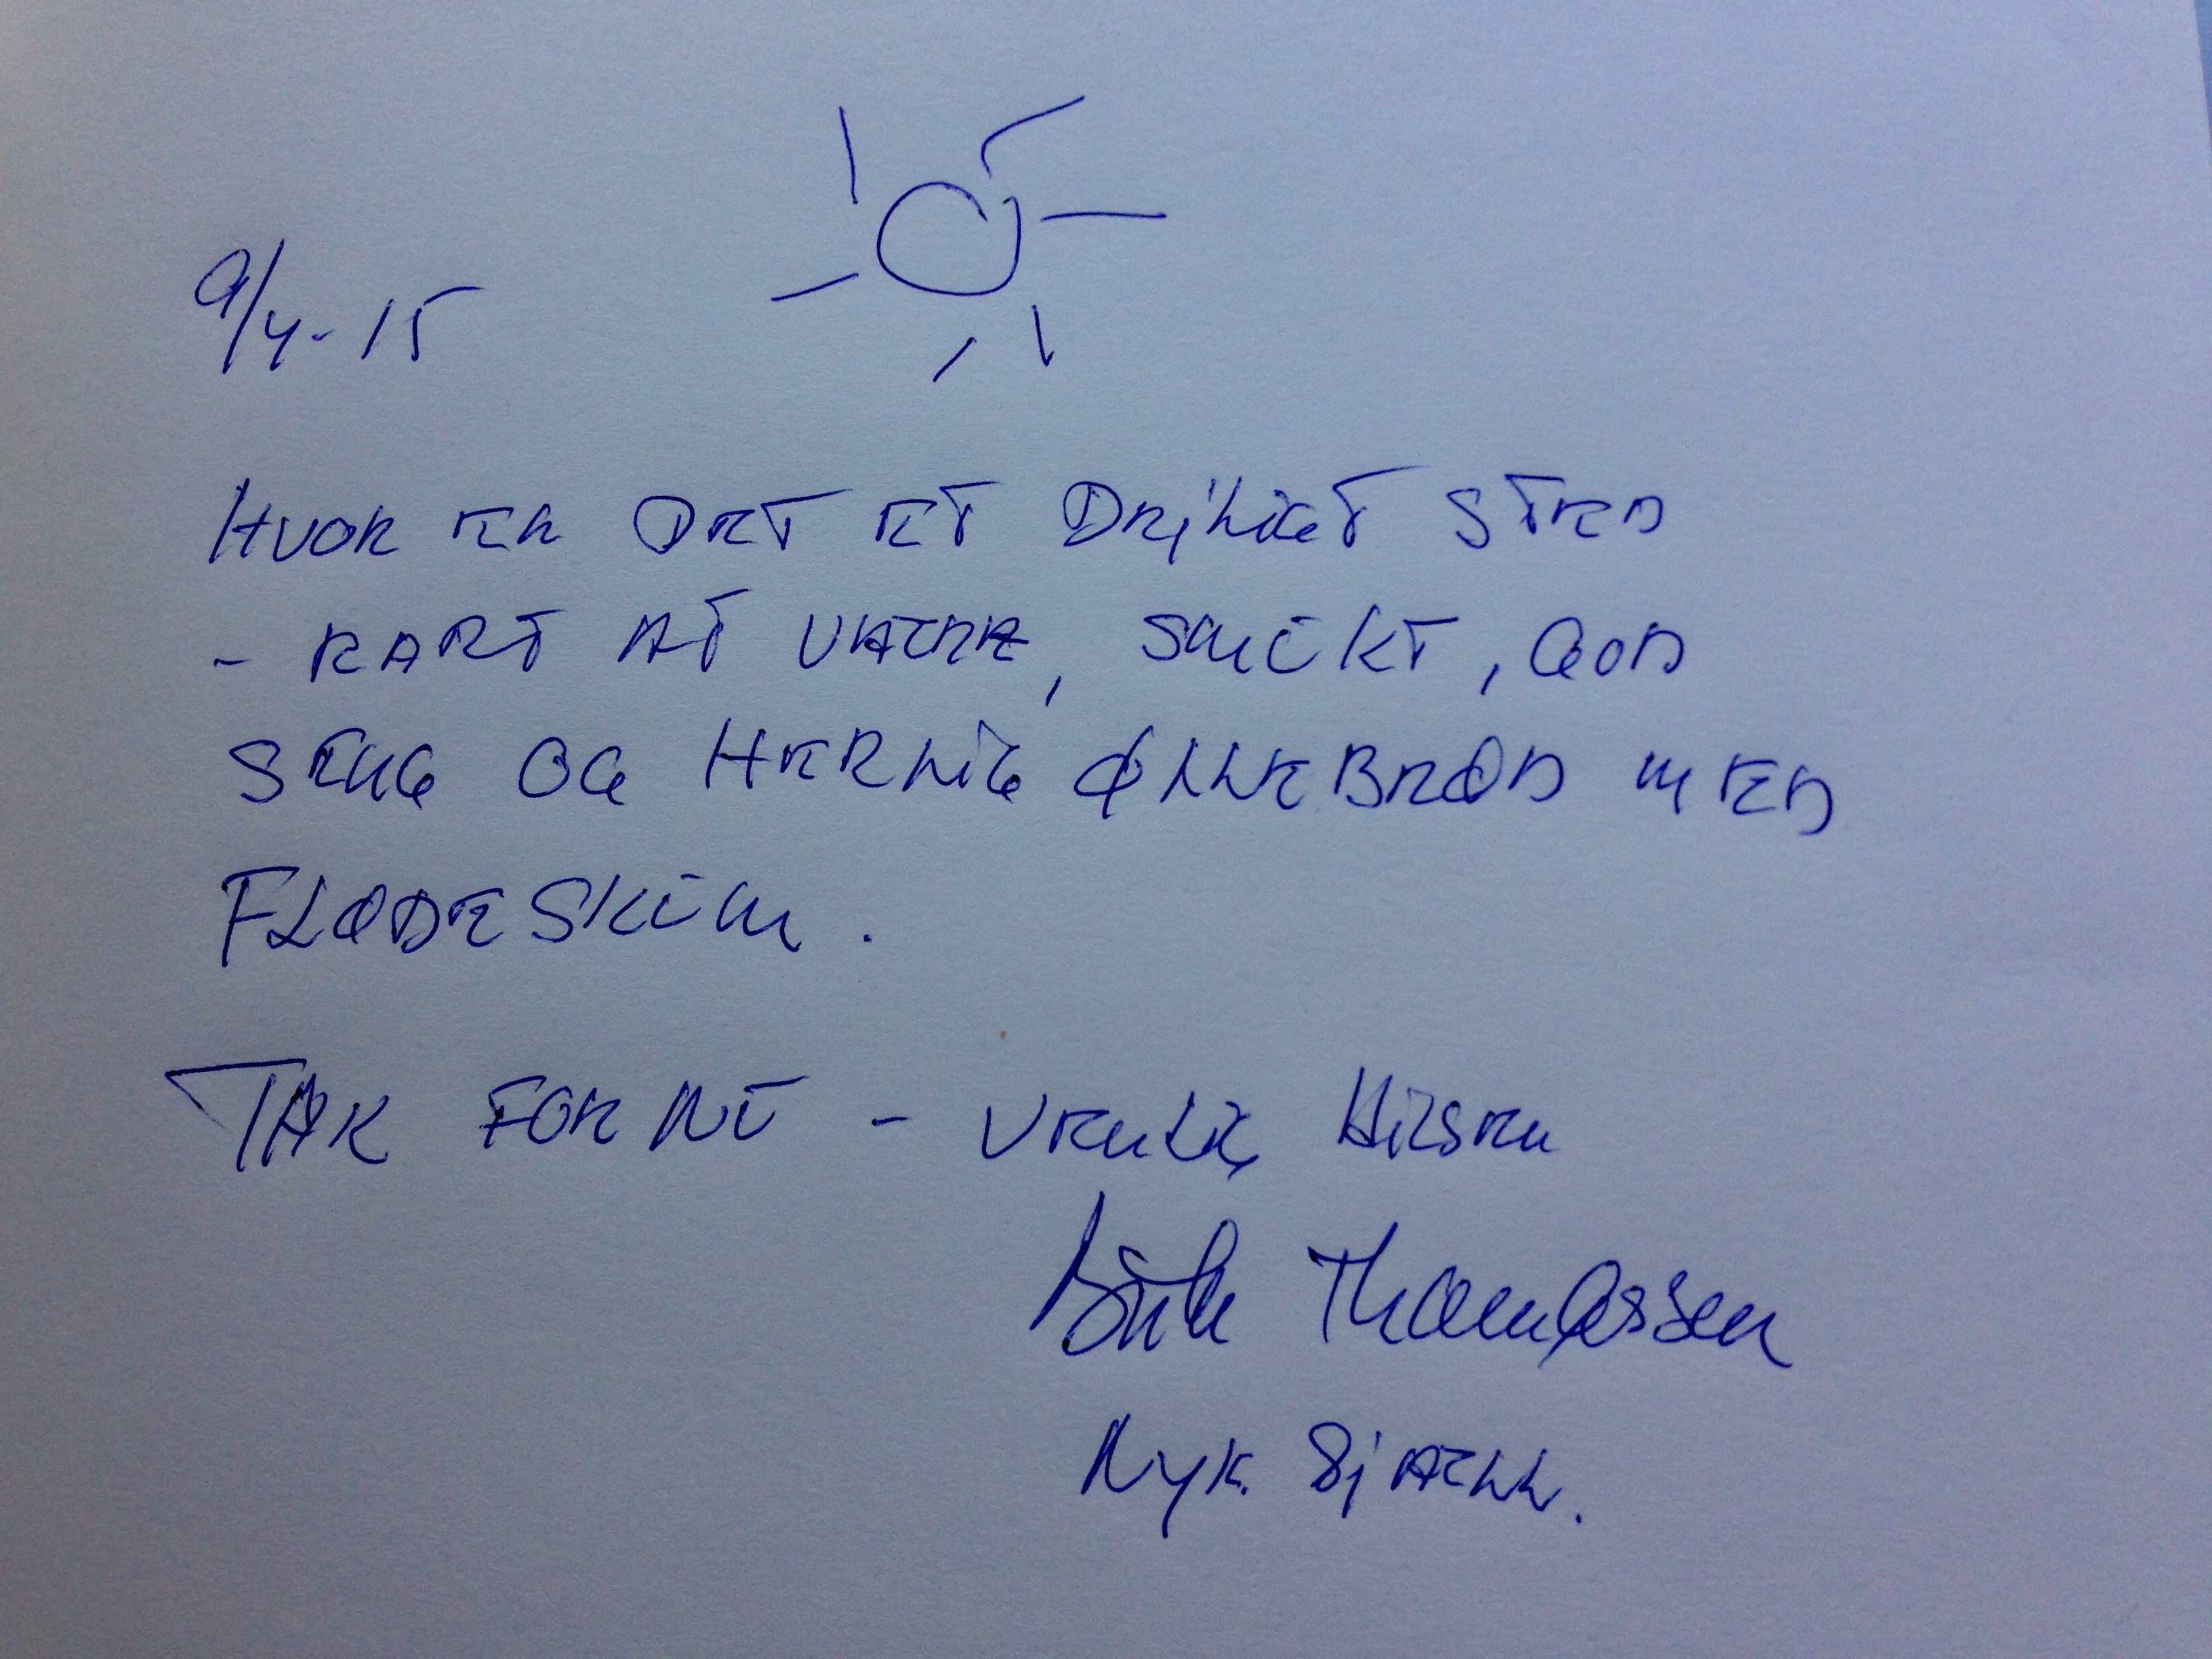 9/4-15
HVOR ER DET ET DEJLIGT STED
- RART AT VÆRE, SMUKT, GOD
SENG OG HERLIG ØLLEBRØD MED
FLØDESKUM.
TAK FOR NU - VENLIG HILSEN
Thomassen
NYK. SJÆLL.